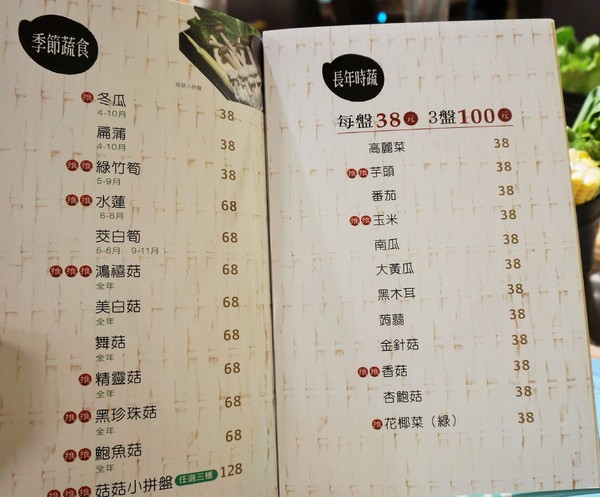 季節蔬食
菇類小拼盤
推 冬瓜 38
4-10月
扁蒲 38
4-10月
推 推 綠竹筍 38
5-9月
推 推 水蓮 68
6-8月
茭白筍 68
5-6月 9-11月
推 推 推 鴻禧菇 68
全年
美白菇 68
全年
舞菇 68
全年
推 精靈菇 68
全年
推 推 黑珍珠菇 68
全年
推 推 鮑魚菇 68
全年
推 推 菇菇小拼盤 任選三種 128
長年時蔬
每盤38元 3盤100元
高麗菜 38
推 推 芋頭 38
番茄 38
推 推 玉米 38
南瓜 38
大黃瓜 38
黑木耳 38
蒟蒻 38
金針菇 38
推 推 香菇 38
杏鮑菇 38
推 花椰菜（綠） 38